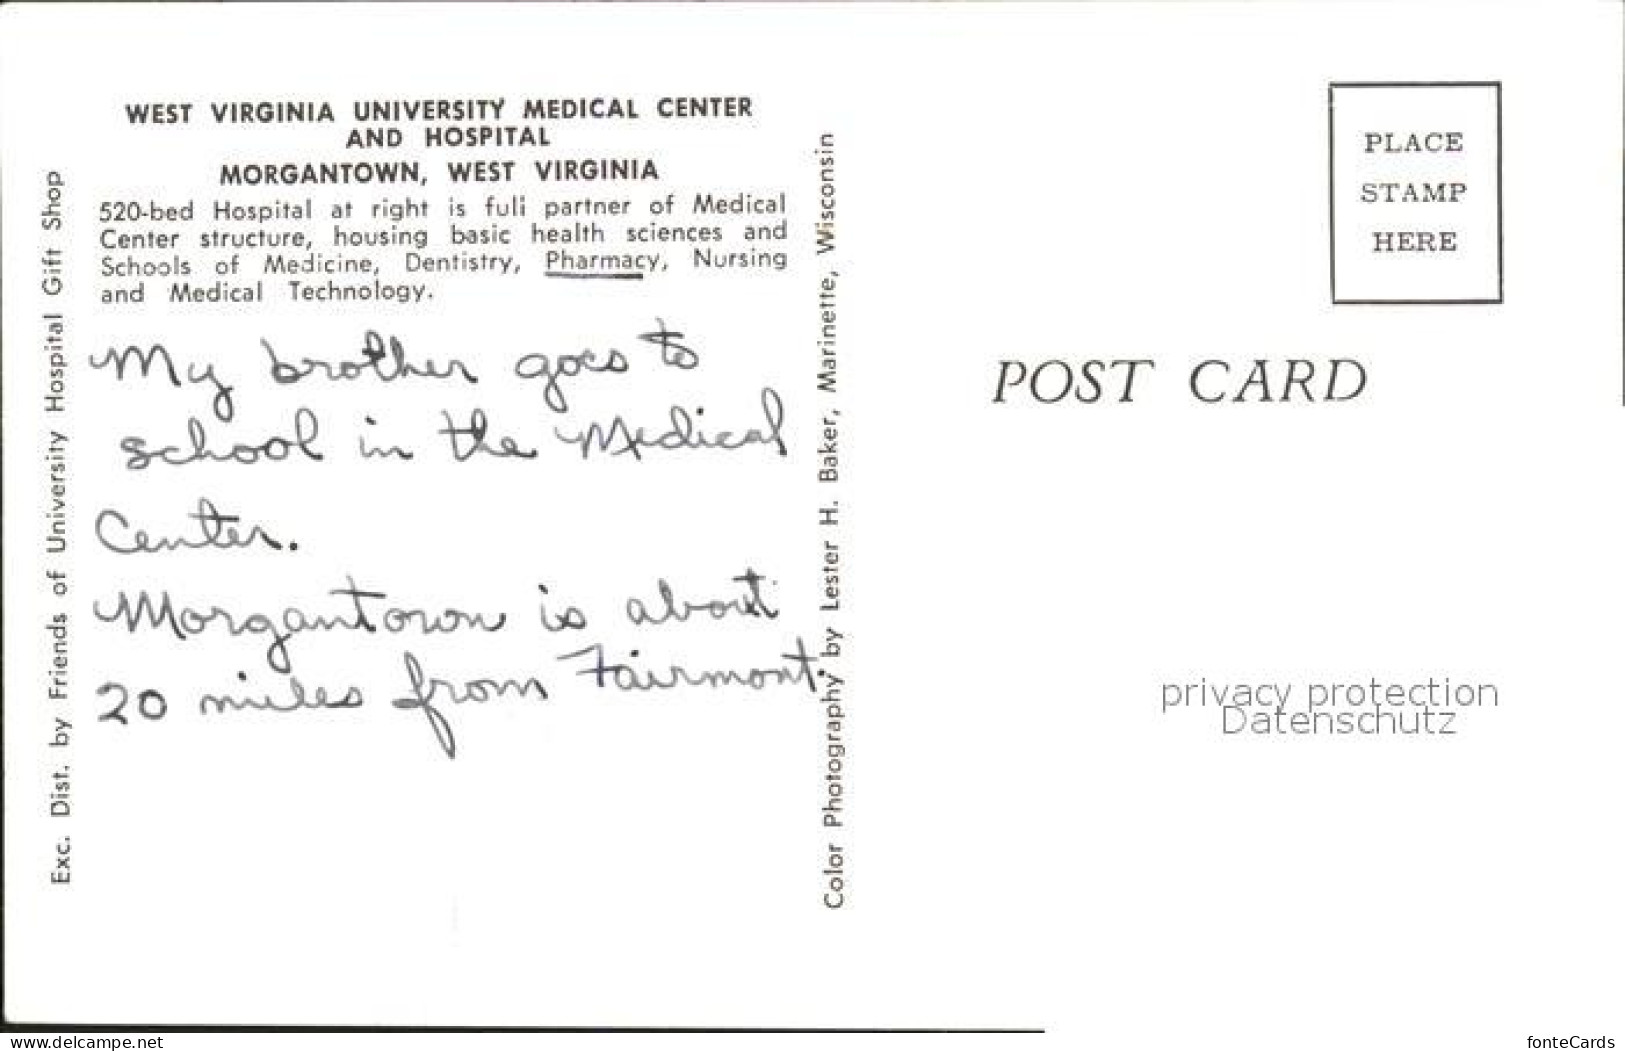 WEST VIRGINIA UNIVERSITY MEDICAL CENTER
AND HOSPITAL
MORGANTOWN, WEST VIRGINIA
520-bed Hospital at right is full partner of Medical
Center structure, housing basic health sciences and
Schools of Medicine, Dentistry, Pharmacy, Nursing
and Medical Technology.
My brother goes to
school in the Medical
Center.
Morgantown is about
20 miles from Fairmont.
Exc. Dist. by Friends of University Hospital Gift Shop
Color Photography by Lester H. Baker, Marinette, Wisconsin
PLACE
STAMP
HERE
POST CARD
privacy protection
Datenschutz
www.delcampe.net
fonteCards